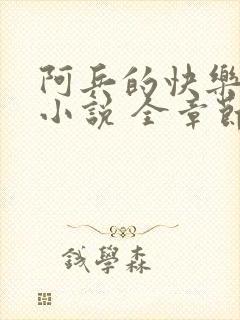 阿兵的快樂
小說 全章節
錢學森